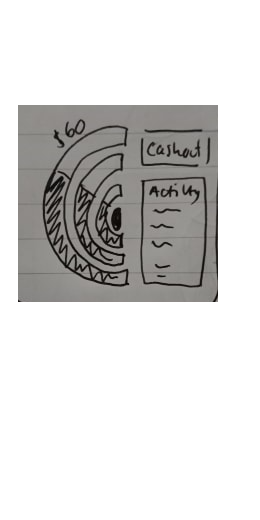 $60
Cashout
Activity